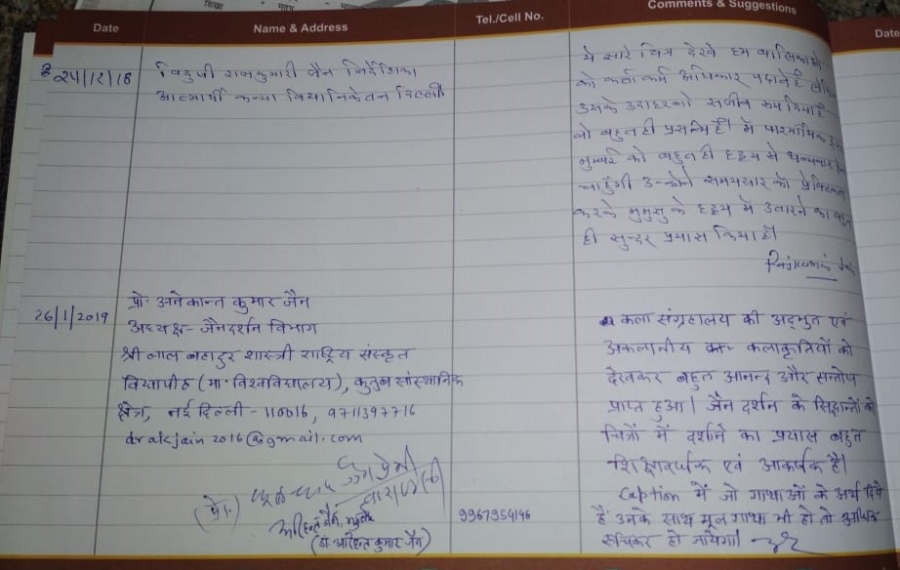 Date
Name & Address
Tel./Cell No.
Comments & Suggestions
Date
24/12/18
विदुषी राजकुमारी जैन निर्देशिका
आत्मार्थी कन्या विद्यानिकेतन दिल्ली
ये सारे चित्र देखे हम बालिकाओं
को कर्ता कर्म अधिकार पढाते हैं
उसके उदाहरणो सजीव रूप दिया है
वो बहुत ही हैं। में पारमार्थिक
मुम्बई को बहुत ही हृदय से धन्यवाद
चाहुँगी उन्होंने समयसार को
करके मुमुक्षु के हृदय में उतारने का बहुत
ही सुन्दर प्रयास किया है।
26/1/2019
प्रो. अनेकान्त कुमार जैन
अध्यक्ष- जैनदर्शन विभाग
श्री लाल बहादुर शास्त्री राष्ट्रिय संस्कृत
विद्यापीठ (मा. विश्वविद्यालय), कुतुब सांस्थानिक
क्षेत्र, नई दिल्ली-110016, 9711397716
drakjain2016@gmail.com
कला संग्रहालय की अद्भुत एवं
अकल्पनीय कलाकृतियों को
देखकर बहुत आनन्द और सन्तोष
प्राप्त हुआ। जैन दर्शन के सिद्धान्तों को
चित्रों में दर्शाने का प्रयास बहुत
शिक्षावर्धक एवं आकर्षक है।
Caption में जो गाथाओं के अर्थ दिये
हैं उनके साथ मूल गाथा भी हो तो अधिक
रुचिकर हो जायेगा।
(प्रो.) फूलचन्द जैन प्रेमी
वाराणसी
(डॉ. अरिहन्त कुमार जैन)
9967954146